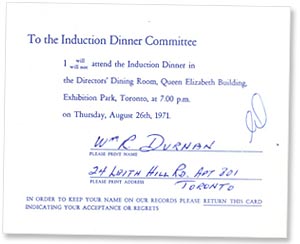 To the Induction Dinner Committee
I will / will not attend the Induction Dinner in
the Directors' Dining Room, Queen Elizabeth Building,
Exhibition Park, Toronto, at 7:00 p.m.
on Thursday, August 26th, 1971.
Wm R. DURNAN
PLEASE PRINT NAME
24 LEITH HILL RD. APT 201
PLEASE PRINT ADDRESS
TORONTO
IN ORDER TO KEEP YOUR NAME ON OUR RECORDS PLEASE RETURN THIS CARD
INDICATING YOUR ACCEPTANCE OR REGRETS